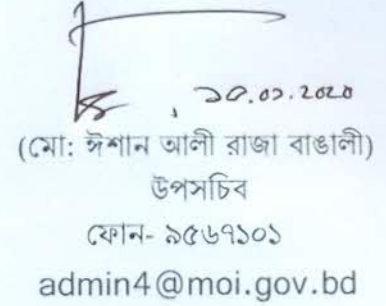 ১০.০১.2020
(মো: ঈশান আলী রাজা বাঙালী)
উপসচিব
ফোন- ৯৫৬৭১০১
admin4@moi.gov.bd